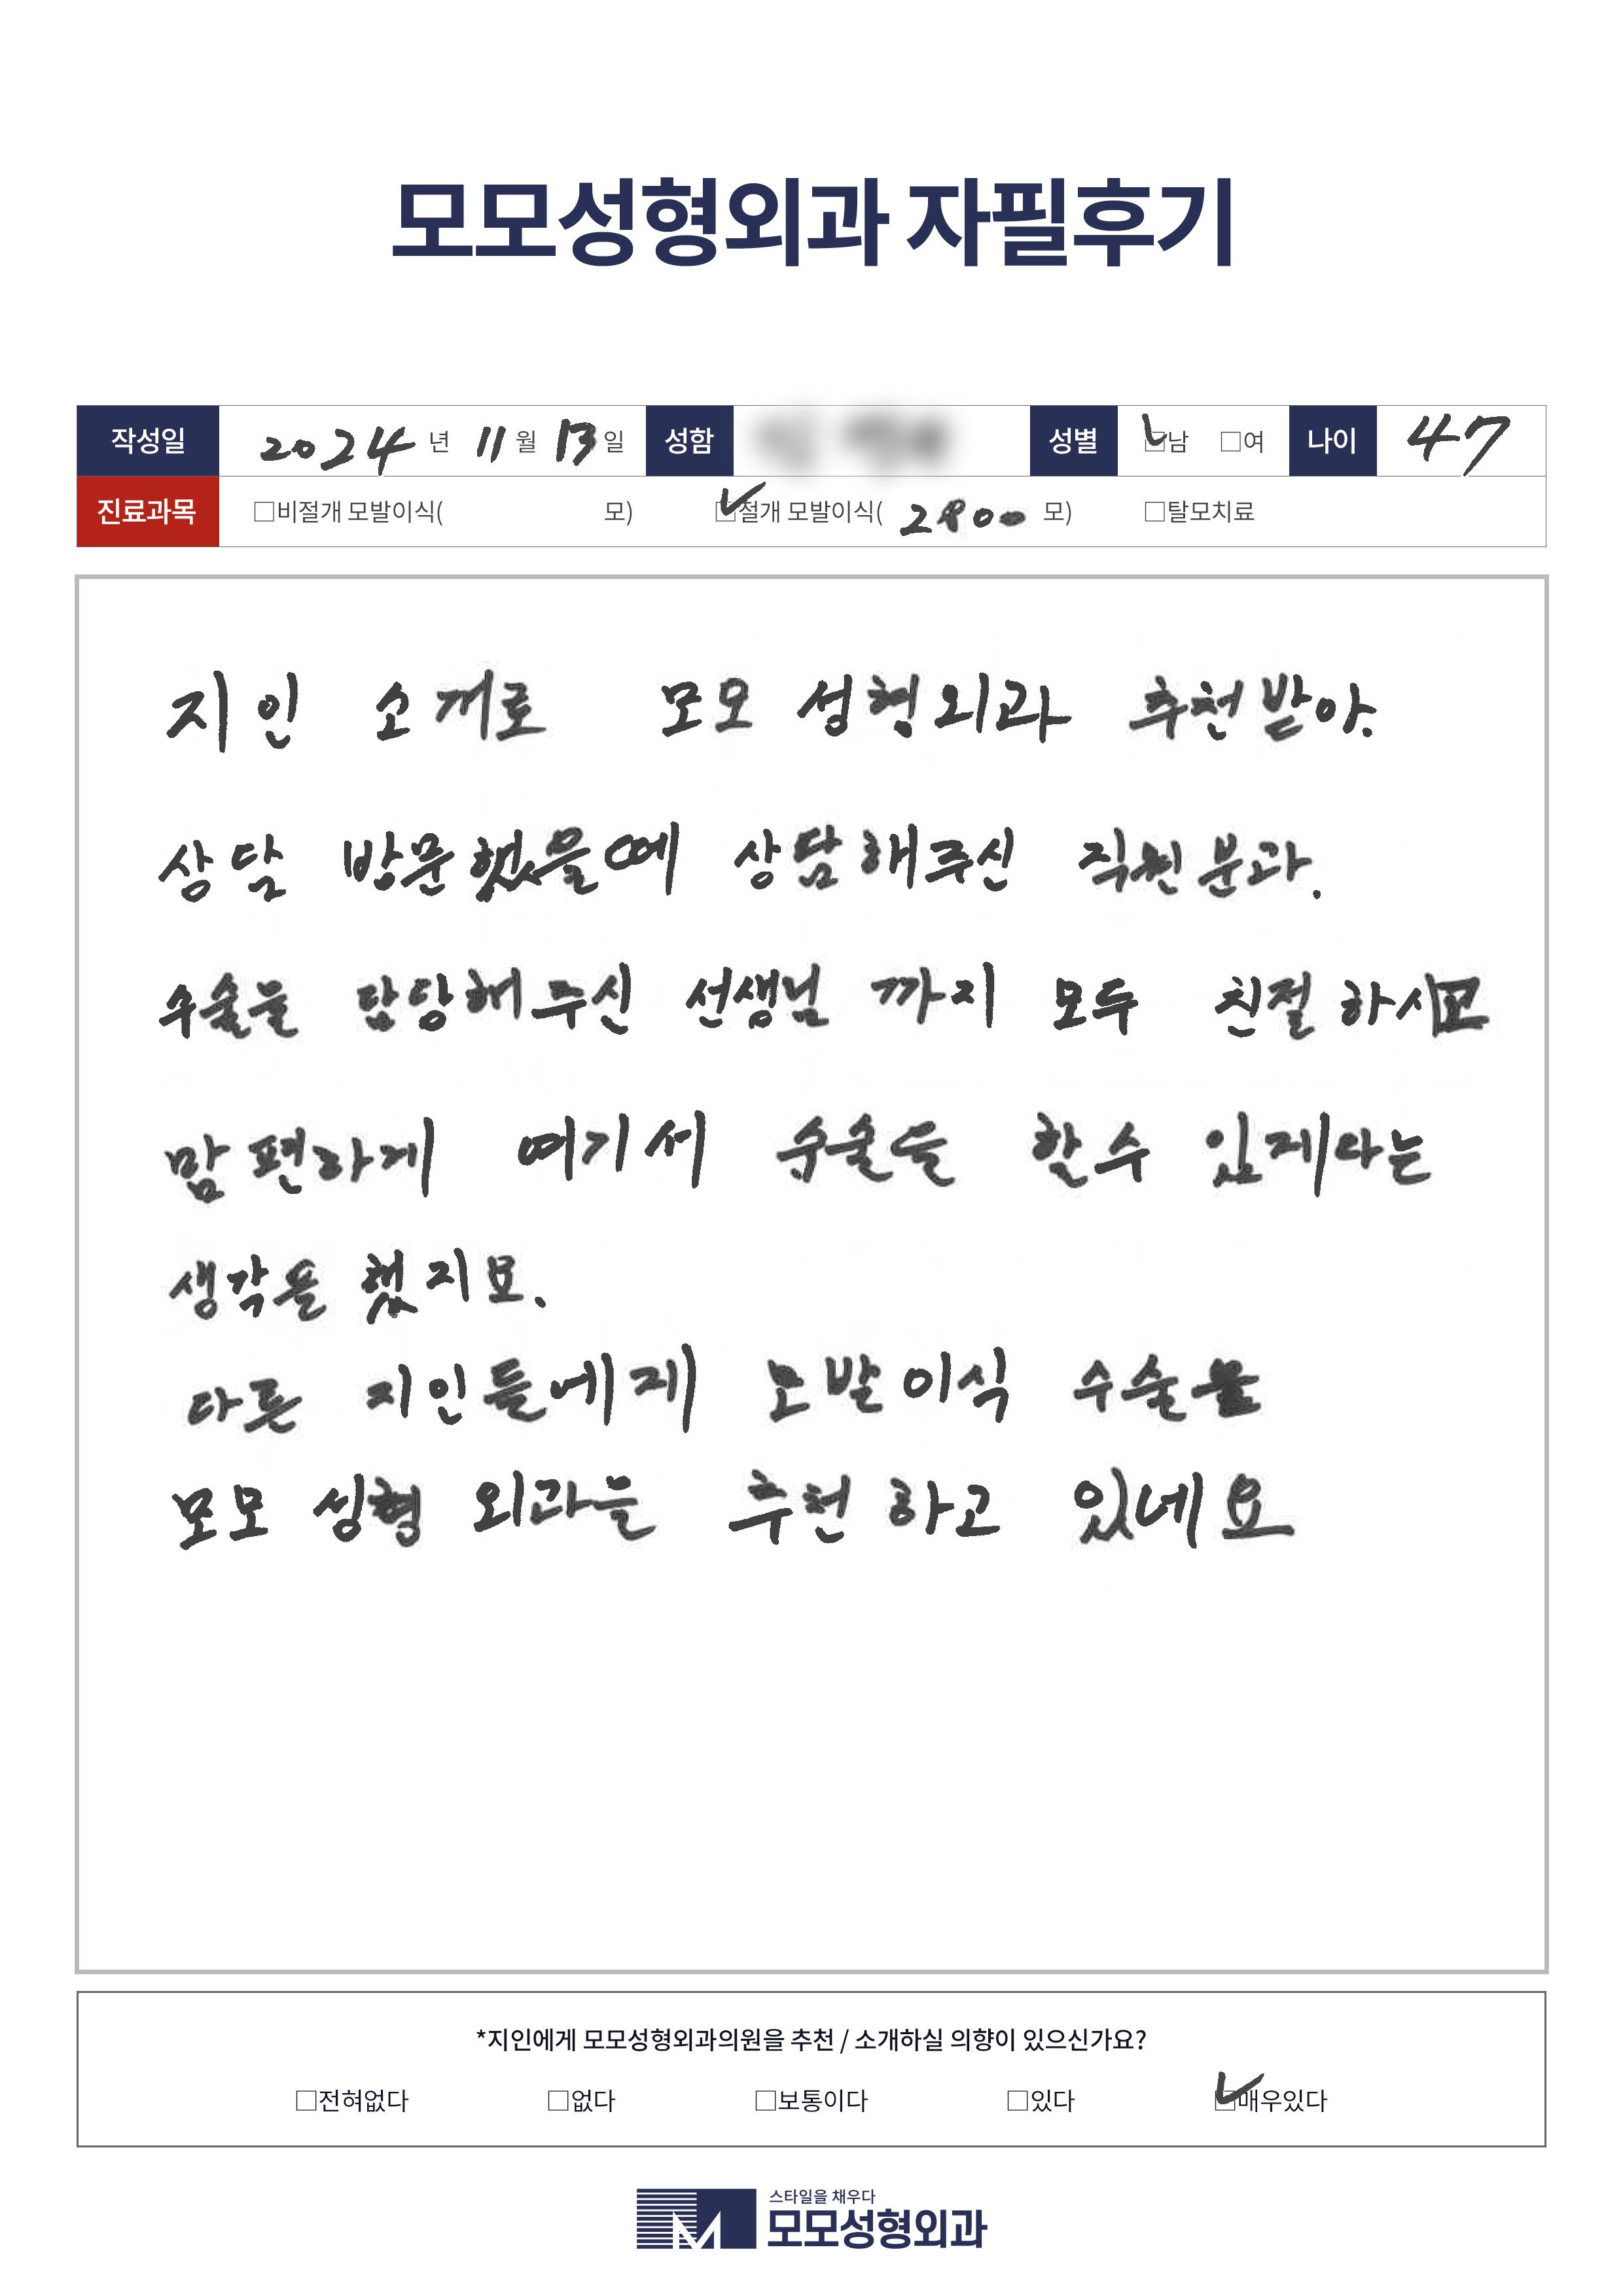 모모성형외과 자필후기
작성일 2024 년 11 월 13 일 성함 성별 □남 □여 나이 47
진료과목 □비절개 모발이식( 모) □절개 모발이식( 2800 모) □탈모치료
지인 소개로 모모 성형외과 추천받아.
상담 방문했을때 상담해주신 직원분과.
수술을 담당해주신 선생님 까지 모두 친절하시고
맘편하게 여기서 수술을 할수 있겠다는
생각을 했지요.
다른 지인들에게 모발이식 수술을
모모 성형 외과을 추천 하고 있네요
*지인에게 모모성형외과의원을 추천 / 소개하실 의향이 있으신가요?
□전혀없다 □없다 □보통이다 □있다 □매우있다
스타일을 채우다
모모성형외과